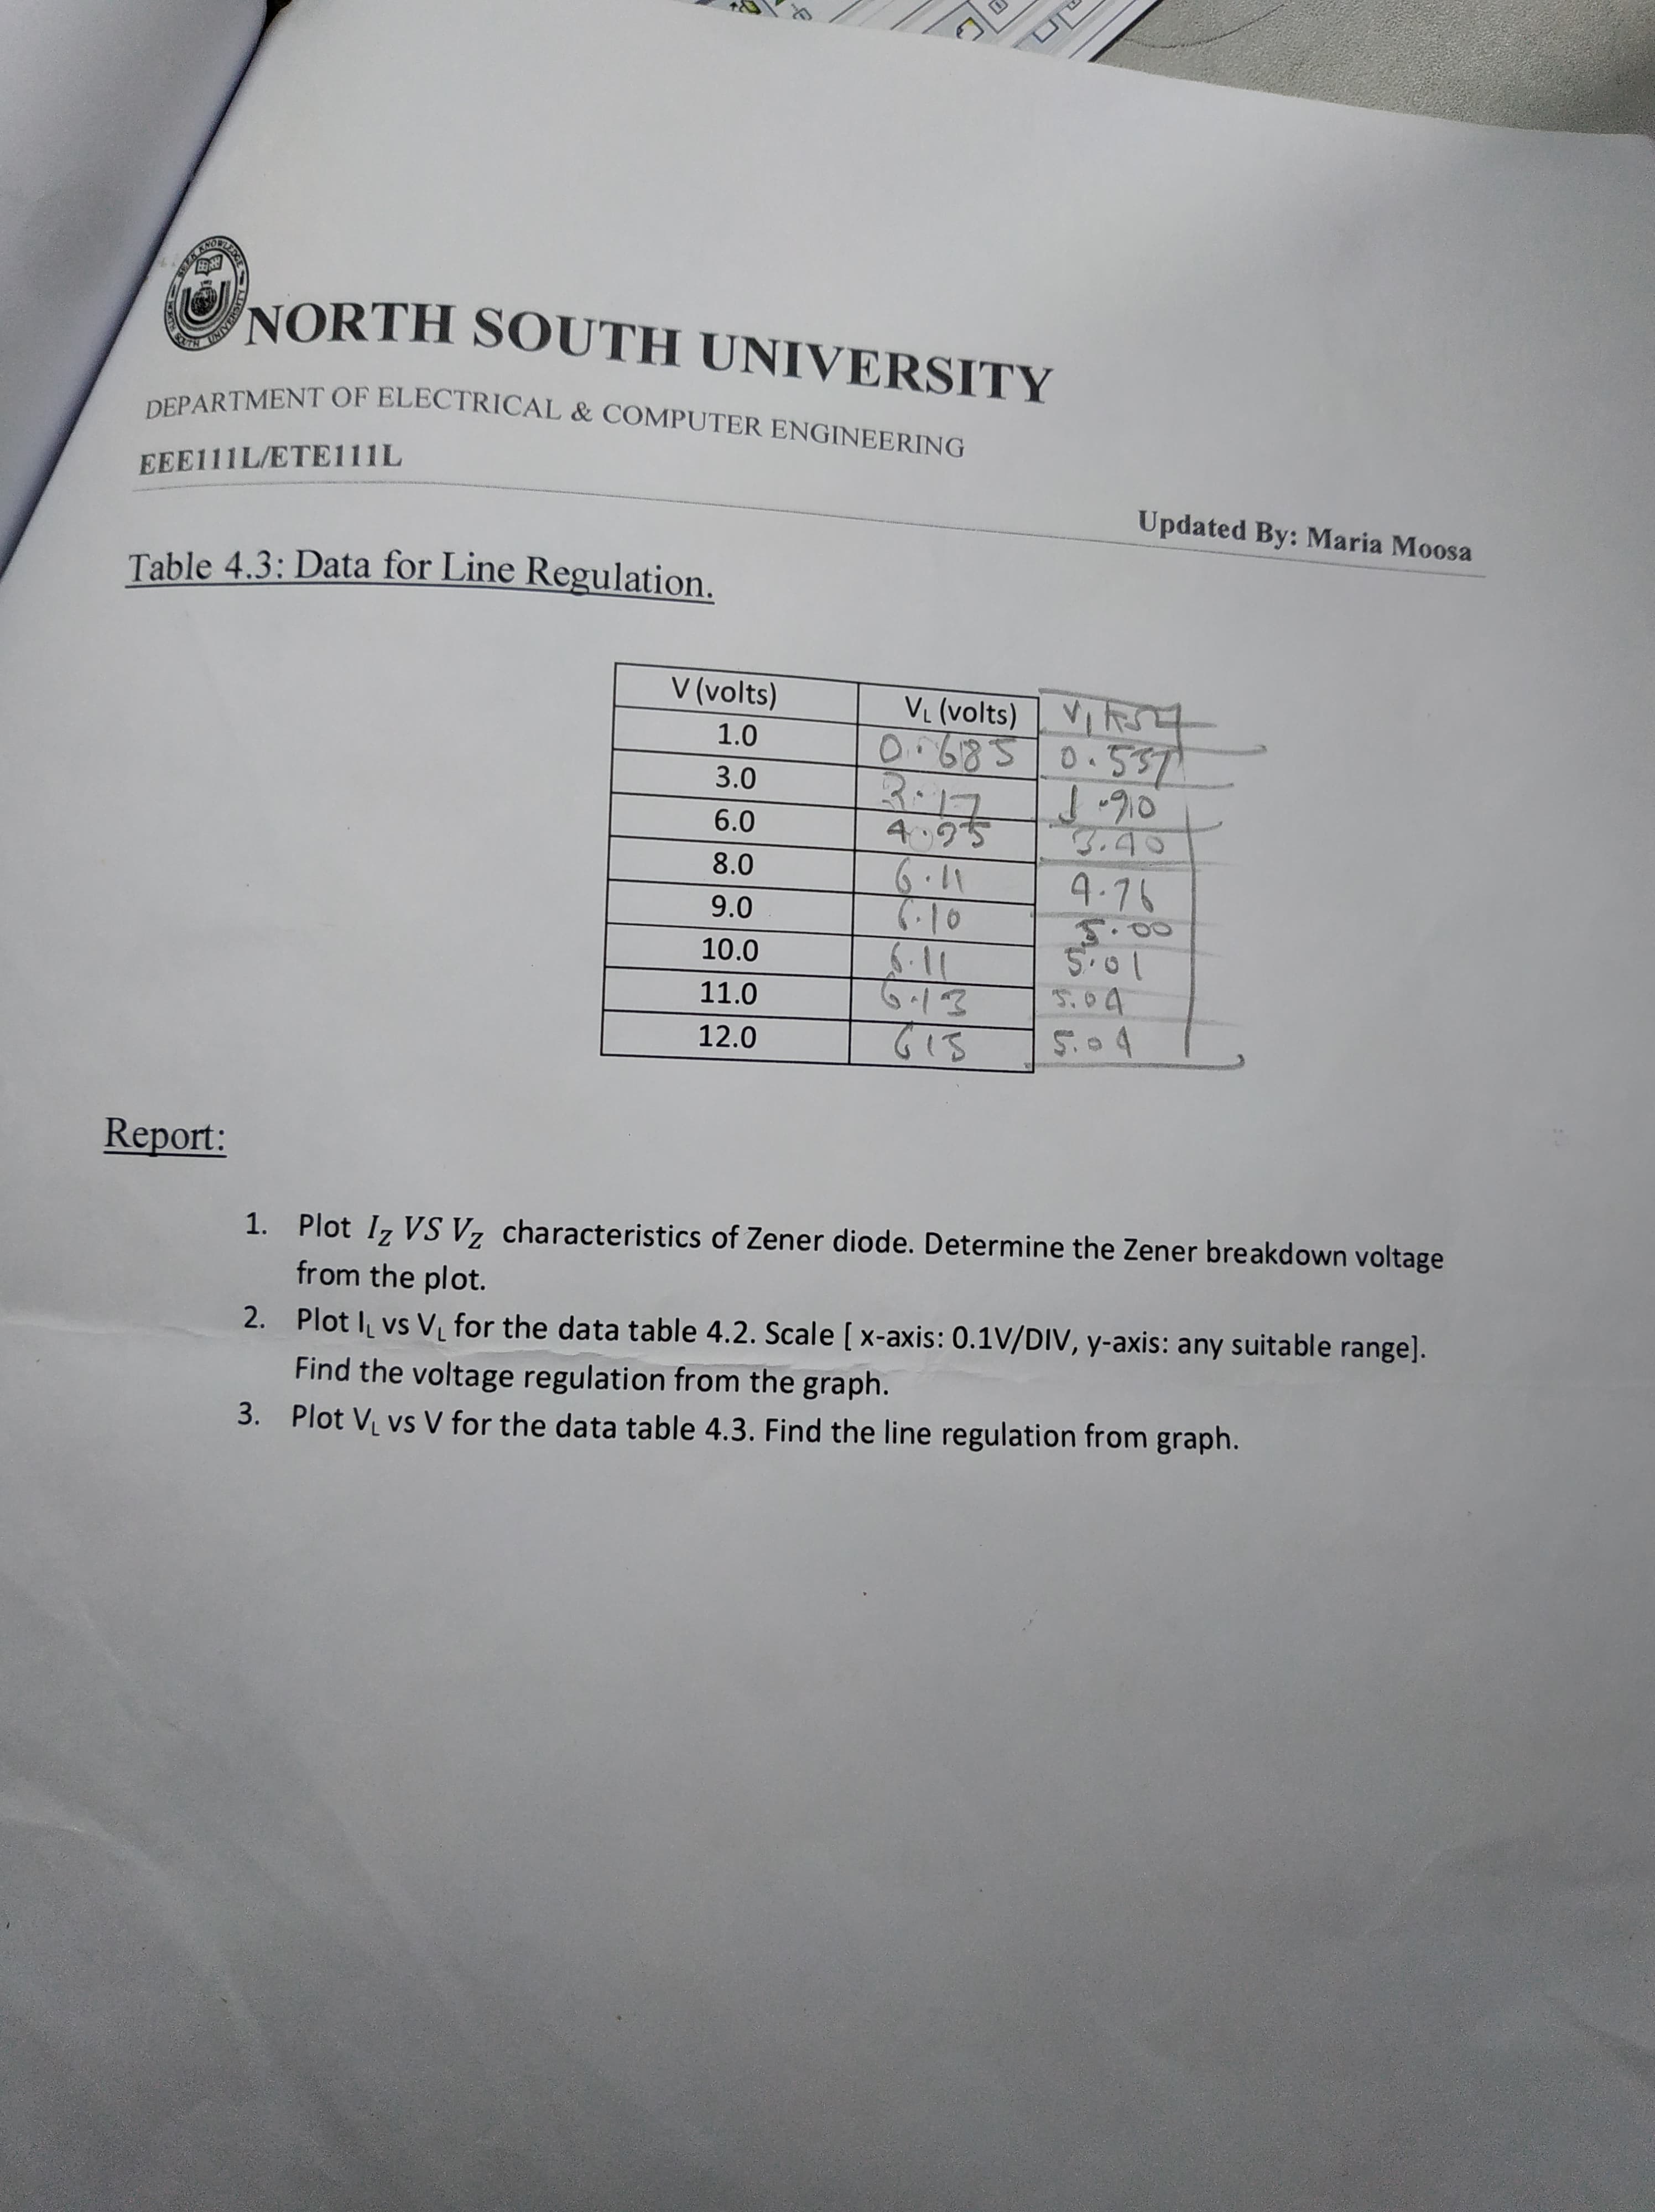 NORTH SOUTH UNIVERSITY
DEPARTMENT OF ELECTRICAL & COMPUTER ENGINEERING
EEE111L/ETE111L
Updated By: Maria Moosa
Table 4.3: Data for Line Regulation.
V (volts) VL (volts)
1.0 0.685 0.537
3.0 1.90
6.0 4.95 3.40
8.0 6.11 4.76
9.0 6.10 5.00
10.0 6.11 5.01
11.0 6.13 5.04
12.0 6.15 5.04
Report:
1. Plot IZ VS VZ characteristics of Zener diode. Determine the Zener breakdown voltage
from the plot.
2. Plot IL vs VL for the data table 4.2. Scale [ x-axis: 0.1V/DIV, y-axis: any suitable range].
Find the voltage regulation from the graph.
3. Plot VL vs V for the data table 4.3. Find the line regulation from graph.